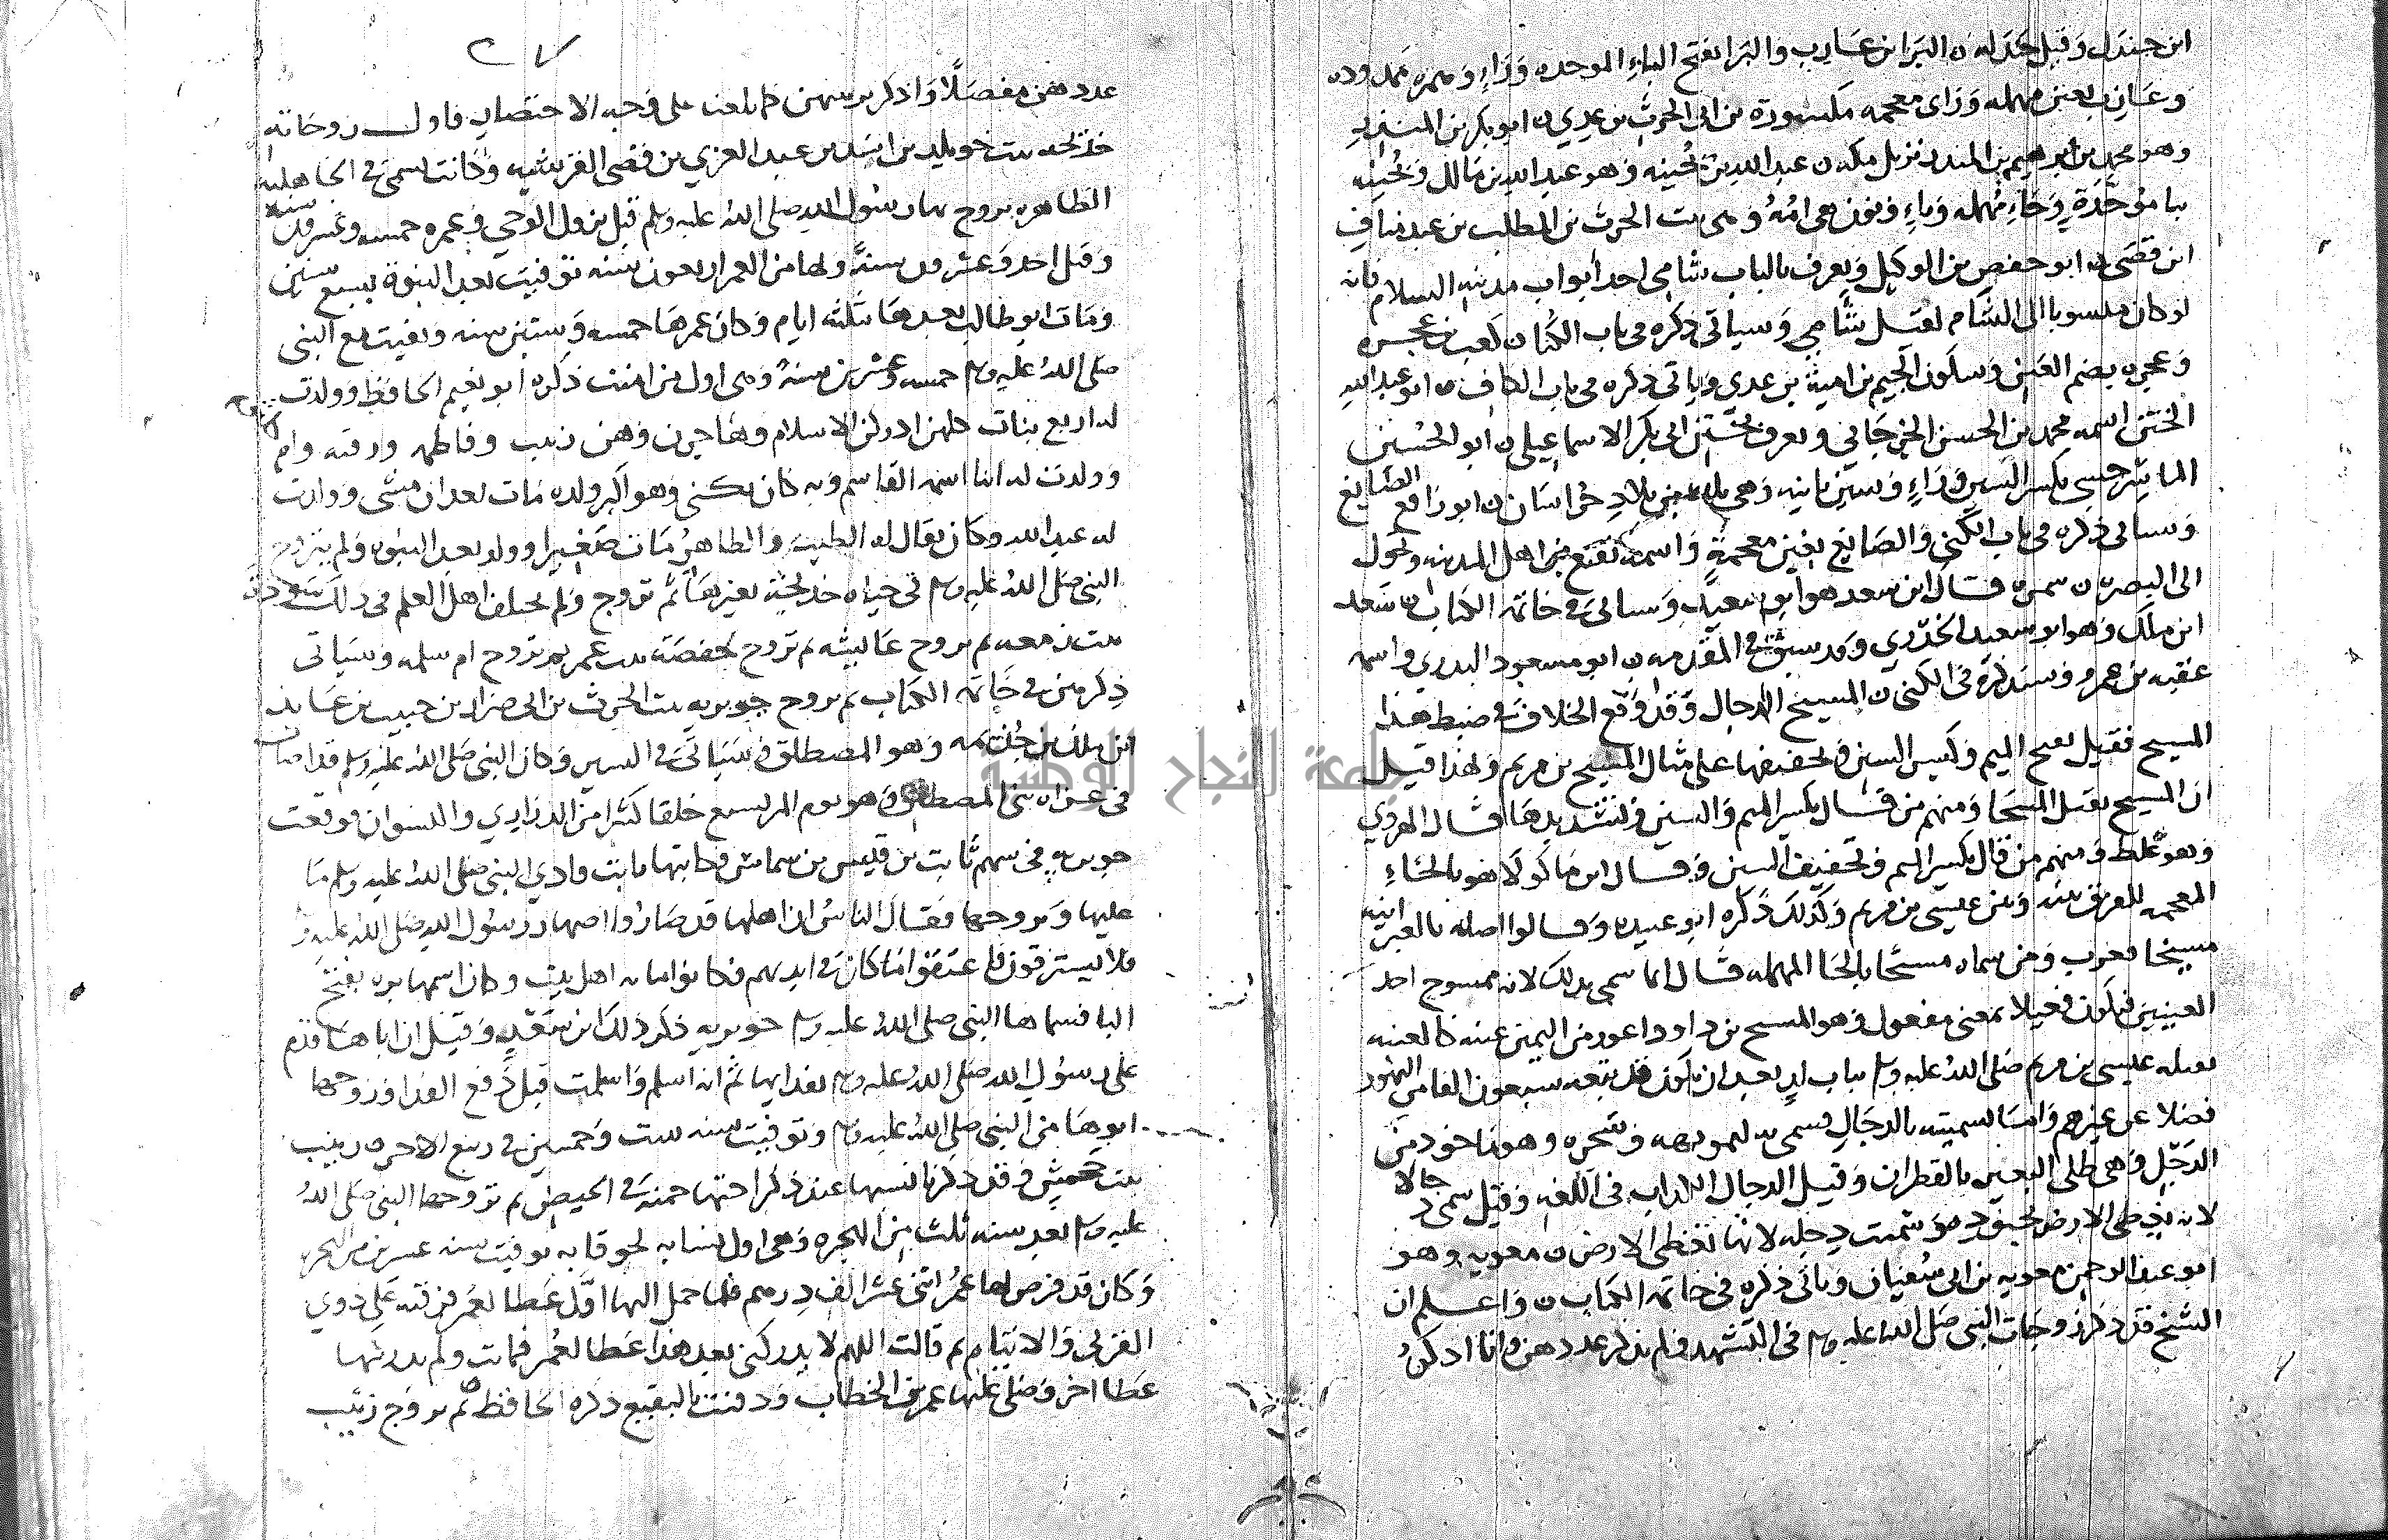 ابن جندل وقيل جندلة ن البرا بن عازب والبرا بفتح الباء الموحده وراء وهمزه ممدوده
وعازب بعين مهمله وزاى معجمه مكسورة بن ابى الحرث بن عدي ن ابو بكر بن المنذر
وهو محمد بن ابرهيم بن المنذر نزيل مكه ن عبد الله بن بحينه وهو عبد الله بن مالك وبحينه
ببا موحدة وحاء مهمله وياء ونون هى امه وهى بنت الحرث بن المطلب بن عبد مناف
ابن قصى ن ابو حفص بن الوكيل ويعرف بالباب شامى احد أبواب مدينه السلام فانه
لو كان منسوبا الى الشام لقيل شامي وسياتى ذكره فى باب الكنى ن كعب بن عجره
وعجره بضم العين وسكون الجيم بن امية بن عدي وياتى ذكره فى باب الكاف ن ابو عبد الله
الختن اسمه محمد بن الحسن الجرجاني ويعرف بختن ابى بكر الاسماعيلى ن ابو الحسين
الماسرجسى بكسر السين وراء وسين ثانيه وهى بلاد خراسان ن ابو رافع الصايغ
وسياتى ذكره فى باب الكنى والصايغ بغين معجمة واسمه نفيع من اهل المدينه وتحول
الى البصره ن سمره قال ابن سعد هو ابو سعيد وسياتى فى خاتمه الكتاب ن سعد
ابن ملك وهو ابو سعيد الخدري وقد سبق فى المقدمه ن ابو مسعود البدري واسمه
عقبه بن عمرو وسنذكره فى الكنى ن المسيح الدجال وقد وقع الخلاف فى ضبط هذا
المسيح فقيل بفتح الميم وكسر السين وتخفيفها على مثال المسيح بن مريم ولهذا قيل
ان المسيح يقتل المسيحا ومنهم من قال بكسر الميم والسين وتشديدها قال الهروي
وهو غلط ومنهم من قال بكسر الميم وتخفيف السين وقال ابن ماكولا هو بالخاء
المعجمه للفرق بينه وبين عيسى بن مريم وكذلك ذكره ابو عبيده وقالوا اصله بالعبرانيه
مسيخا فعرب ومن سماه مسيحا بالحا المهمله قال انما سمى بذلك لانه ممسوح احد
العينين فيكون فعيلا بمعنى مفعول وهو المسيح بن داود اعور من اليمين عينه كالعنبه
يقتله عيسى بن مريم صلى الله عليه وسلم بباب لد بعد ان يكون قد تبعه سبعون الفا من اليهود
فضلا عن غيرهم واما تسميته بالدجال فسمى به لتمويهه وسحره وهو ماخوذ من
الدجل وهى طلى البعير بالقطران وقيل الدجال الكذاب فى اللغه وقيل سمى دجالا
لانه يغطى الارض بخيف سميت دجله لانها تغطى الارض ن معويه وهو
ابو عبد الرحمن معويه بن ابى سفيان وياتى ذكره فى خاتمه الكتاب ن واعلم ان
الشيخ قد ذكر زوجات النبى صلى الله عليه وسلم فى التشهد ولم يذكر عددهن وانا اذكر
٢٧
عددهن مفصلا واذكر على وجه الاختصار فاول زوجاته
خديجه بنت خويلد بن اسد بن عبد العزي بن قصى القرشيه وكانت تسمى فى الجاهليه
الطاهره تزوج بها رسول الله صلى الله عليه وسلم قبل نزول الوحى وعمره خمسه وعشرون سنه
وقيل احد وعشرون سنة ولها من العمر اربعون سنه توفيت بعد النبوة بسبع سنين
ومات ابو طالب بعدها بثلثه ايام وكان عمرها خمسه وستين سنه وبقيت مع النبى
صلى الله عليه وسلم خمسه وعشرين سنة وهى اول من امنت ذكره ابو نعيم الحافظ وولدت
له اربع بنات كلهن ادركن الاسلام وهاجرن وهن زينب وفاطمه ورقيه وام كلثوم
وولدت له ابنا اسمه القاسم وبه كان يكنى وهو اكبر ولده مات بعد ان مشى وولدت
له عبد الله وكان يقال له الطيب والطاهر مات صغيرا وولد بعد النبوه ولم يتزوج
النبى صلى الله عليه وسلم فى حياه خديجة بغيرها ثم تزوج ولم يختلف اهل العلم فى ذلك سودة
بنت زمعه ثم تزوج عايشه ثم تزوج بحفصة بنت عمر ثم تزوج ام سلمه وسياتى
ذكرهن فى خاتمه الكتاب ثم تزوج جويريه بنت الحرث بن ابى ضرار بن حبيب بن عايذ
ابن ملك بن جذيمه وهو المصطلق وسياتى فى السير وكان النبى صلى الله عليه وسلم قد اصاب
فى غزاه بنى المصطلق وهو يوم المريسيع خلقا كثيرا من الذراري والنسوان فوقعت
جويريه فى سهم ثابت بن قيس بن شماس فكاتبها ثابت وادي النبى صلى الله عليه وسلم ما
عليها وتزوجها فقال الناس ان اهلها قد صاروا اصهار رسول الله صلى الله عليه وسلم
فلا يسترقون فاعتقوا ما كان فى ايديهم فكانوا مايه اهل بيت وكان اسمها بره بفتح
البا فسماها النبى صلى الله عليه وسلم جويريه ذكر ذلك ابن سعد وقيل ان اباها قدم
على رسول الله صلى الله عليه وسلم بفدايها ثم انه اسلم واسلمت قبل دفع الفدا وزوجها
ابوها من النبى صلى الله عليه وسلم وتوفيت سنه ست وخمسين فى ربيع الاخر ن زينب
بنت جحش وقد ذكرنا نسبها عند ذكر اختها حمنه فى الحيض ثم تزوجها النبى صلى الله
عليه وسلم بعد سنه ثلث من الهجره وهى اول نسايه لحوقا به توفيت سنه عشرين من الهجره
وكان قد فرض لها عمر اثنى عشر الف درهم فلما حمل اليها اول عطا لعمر فرقته على ذوي
القربى والايتام ثم قالت اللهم لا يدركنى بعد هذا عطا لعمر فماتت ولم يدركها
عطا اخر وصلى عليها عمر بن الخطاب ودفنت بالبقيع ذكره الحافظ ثم تزوج زينب
جامعة النجاح الوطنية